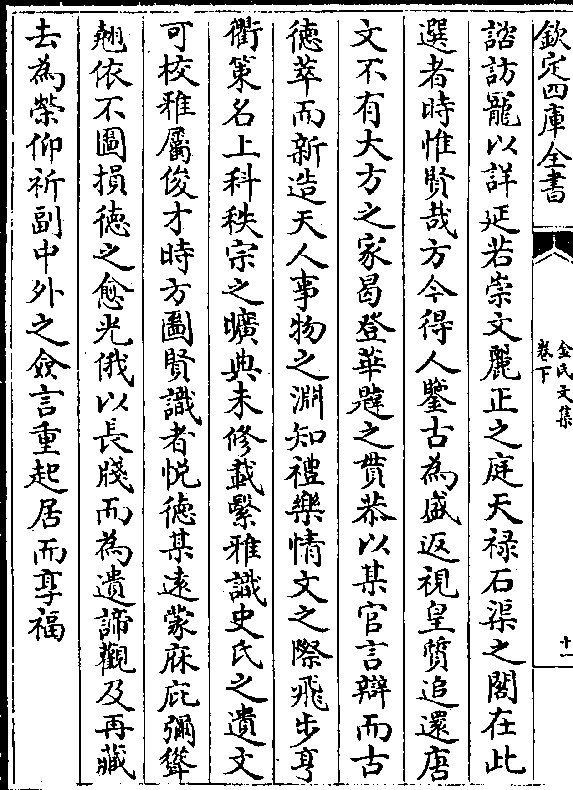 欽定四庫全書
金氏文集
卷下
十一
諮訪寵以詳延若崇文麗正之庭天禄石渠之閣在此
選者時惟賢哉方今得人鑒古為盛返視皇質追還唐
文不有大方之家曷登華韙之貫恭以某官言辯而古
徳萃而新造天人事物之淵知禮樂情文之際飛步亨
衢策名上科秩宗之曠典未修載繄雅識史氏之遺文
可校雅屬俊才時方圖賢識者悦徳某逺蒙庥庇彌聳
翹依不圖損徳之愈光俄以長牋而為遺諦觀及再藏
去為榮仰祈副中外之僉言重起居而享福